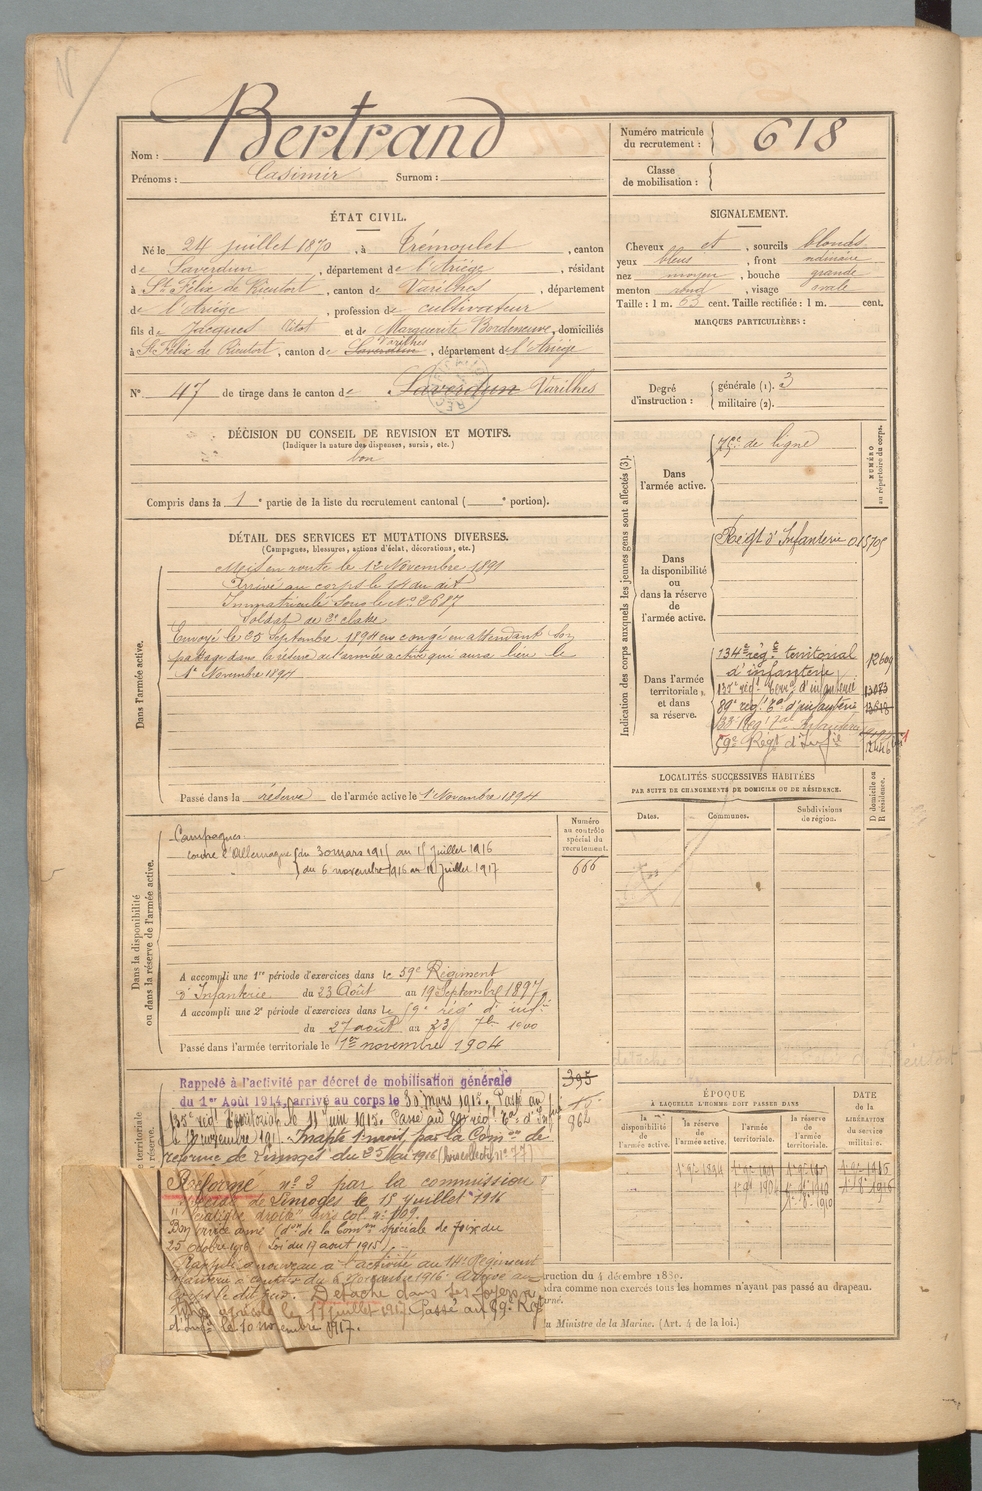 Bertrand
Nom :
Prénoms : Casimir Surnom :
Numéro matricule du recrutement : 618
Classe de mobilisation :
ÉTAT CIVIL.
Né le 24 juillet 1870, à Trémoulet, canton
de Saverdun, département de l'Ariège, résidant
à St Félix de Rieutort, canton de Varilhes, département
de l'Ariège, profession de cultivateur
fils de Jacques et de Marguerite Bordeneuve, domiciliés
Varilhes
à St Félix de Rieutort, canton de Saverdun, département de l'Ariège
N° 47 de tirage dans le canton de Saverdun Varilhes
SIGNALEMENT.
Cheveux et, sourcils blonds
yeux bleus, front ordinaire
nez moyen, bouche grande
menton rond, visage ovale
Taille : 1 m. 63 cent. Taille rectifiée : 1 m. cent.
MARQUES PARTICULIÈRES :
Degré d'instruction : générale (1). 3
militaire (2).
DÉCISION DU CONSEIL DE REVISION ET MOTIFS.
(Indiquer la nature des dispenses, sursis, etc.)
bon
Compris dans la 1e partie de la liste du recrutement cantonal ( e portion).
DÉTAIL DES SERVICES ET MUTATIONS DIVERSES.
(Campagnes, blessures, actions d'éclat, décorations, etc.)
Dans l'armée active.
Mis en route le 12 Novembre 1891
Arrivé au corps le 14 du dit
Immatriculé sous le No 2687
Soldat de 2e classe
Envoyé le 25 Septembre 1894 en congé en attendant son
passage dans la réserve de l'armée active qui aura lieu le
1er Novembre 1894
Passé dans la réserve de l'armée active le 1 Novembre 1894
Indication des corps auxquels les jeunes gens sont affectés (3).
NUMÉRO au répertoire du corps.
Dans l'armée active.
de ligne
Dans la disponibilité ou dans la réserve de l'armée active.
Régt d'Infanterie 015705
Dans l'armée territoriale et dans sa réserve.
134e rég.t territorial
d'infanterie 12609
135e régt Terr.al d'infanterie 13083
89e régt Tal d'infanterie
59e Régt d'Infie
LOCALITÉS SUCCESSIVES HABITÉES
PAR SUITE DE CHANGEMENTS DE DOMICILE OU DE RÉSIDENCE.
D domicile ou R résidence.
Dates. Communes. Subdivisions de région.
Dans la disponibilité ou dans la réserve de l'armée active.
Numéro au contrôle spécial du recrutement.
666
Campagnes
contre l'Allemagne du 30 mars 1915 au 15 Juillet 1916
du 6 novembre 1916 au 16 Juillet 1917
A accompli une 1re période d'exercices dans le 59e Régiment
d'Infanterie du 23 Août au 19 Septembre 1897
A accompli une 2e période d'exercices dans le 59e régt d'inf.
du 27 août au 23 7bre 1900
Passé dans l'armée territoriale le 1er novembre 1904
Rappelé à l'activité par décret de mobilisation générale
du 1er Août 1914, arrivé au corps le 30 mars 1915. Passé au
135e régt territorial le 11 juin 1915. Passé au 89e régt Tal d'Infie
Inapte 1 mois par la Comon de
réforme de Limoges du 25 Mai 1916
395
864
Réforme no 2 par la commission
spéciale de Limoges le 15 Juillet 1916
Bon service armé (don de la Comon spéciale de Foix du
25 octobre 1916 (Loi du 17 août 1915)
Rappelé à nouveau à l'activité au 14e Régiment
Détaché dans ses foyers
agricole le 17 juillet 1917. Passé au 59e Régt
d'Infie le 10 novembre 1917.
ÉPOQUE
À LAQUELLE L'HOMME DOIT PASSER DANS
la disponibilité de l'armée active.
la réserve de l'armée active.
l'armée territoriale.
la réserve de l'armée territoriale.
DATE de la LIBÉRATION du service militaire.
1er 9bre 1894
1er 9bre 1904
ruction du 4 décembre 1889.
ndra comme non exercés tous les hommes n'ayant pas passé au drapeau.
u Ministre de la Marine. (Art. 4 de la loi.)